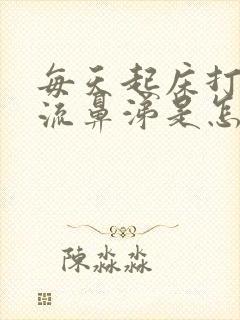 每天起床打
流鼻涕是怎
陳淼淼